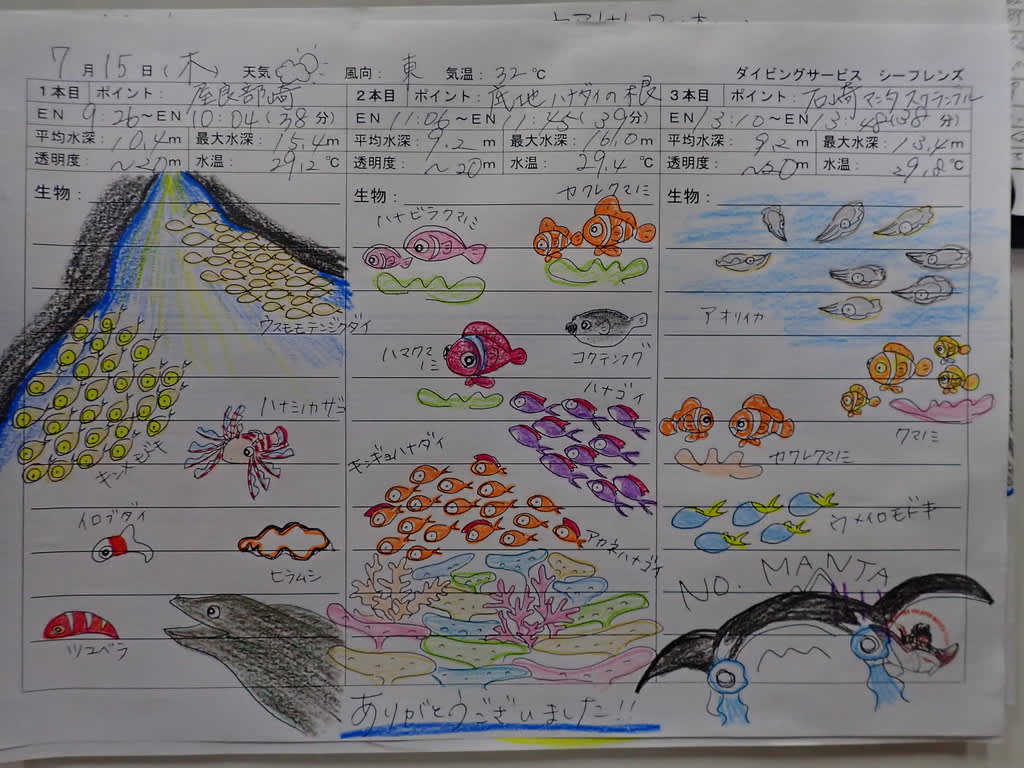 7月15日(木) 天気 風向: 東 気温: 32℃ ダイビングサービス シーフレンズ
1本目 ポイント: 屋良部崎
EN 9:26~EN 10:04(38分)
平均水深: 10.4m 最大水深: 15.4m
透明度: ~20m 水温: 29.2℃
生物:
ウスモモテンジクダイ
キンメモドキ
ハナミノカサゴ
イロブダイ
ヒラムシ
ツユベラ
2本目 ポイント: 底地ハナダイの根
EN 11:06~EN 11:45(39分)
平均水深: 9.2m 最大水深: 16.0m
透明度: ~20m 水温: 29.4℃
生物:
カクレクマノミ
ハナビラクマノミ
ハマクマノミ
コクテンフグ
ハナゴイ
キンギョハナダイ
アカネハナゴイ
ありがとうございました!!
3本目 ポイント: 石崎マンタスクランブル
EN 13:10~EN 13:48(38分)
平均水深: 9.2m 最大水深: 13.4m
透明度: ~20m 水温: 29.8℃
生物:
アオリイカ
クマノミ
カクレクマノミ
ウメイロモドキ
NO. MANTA